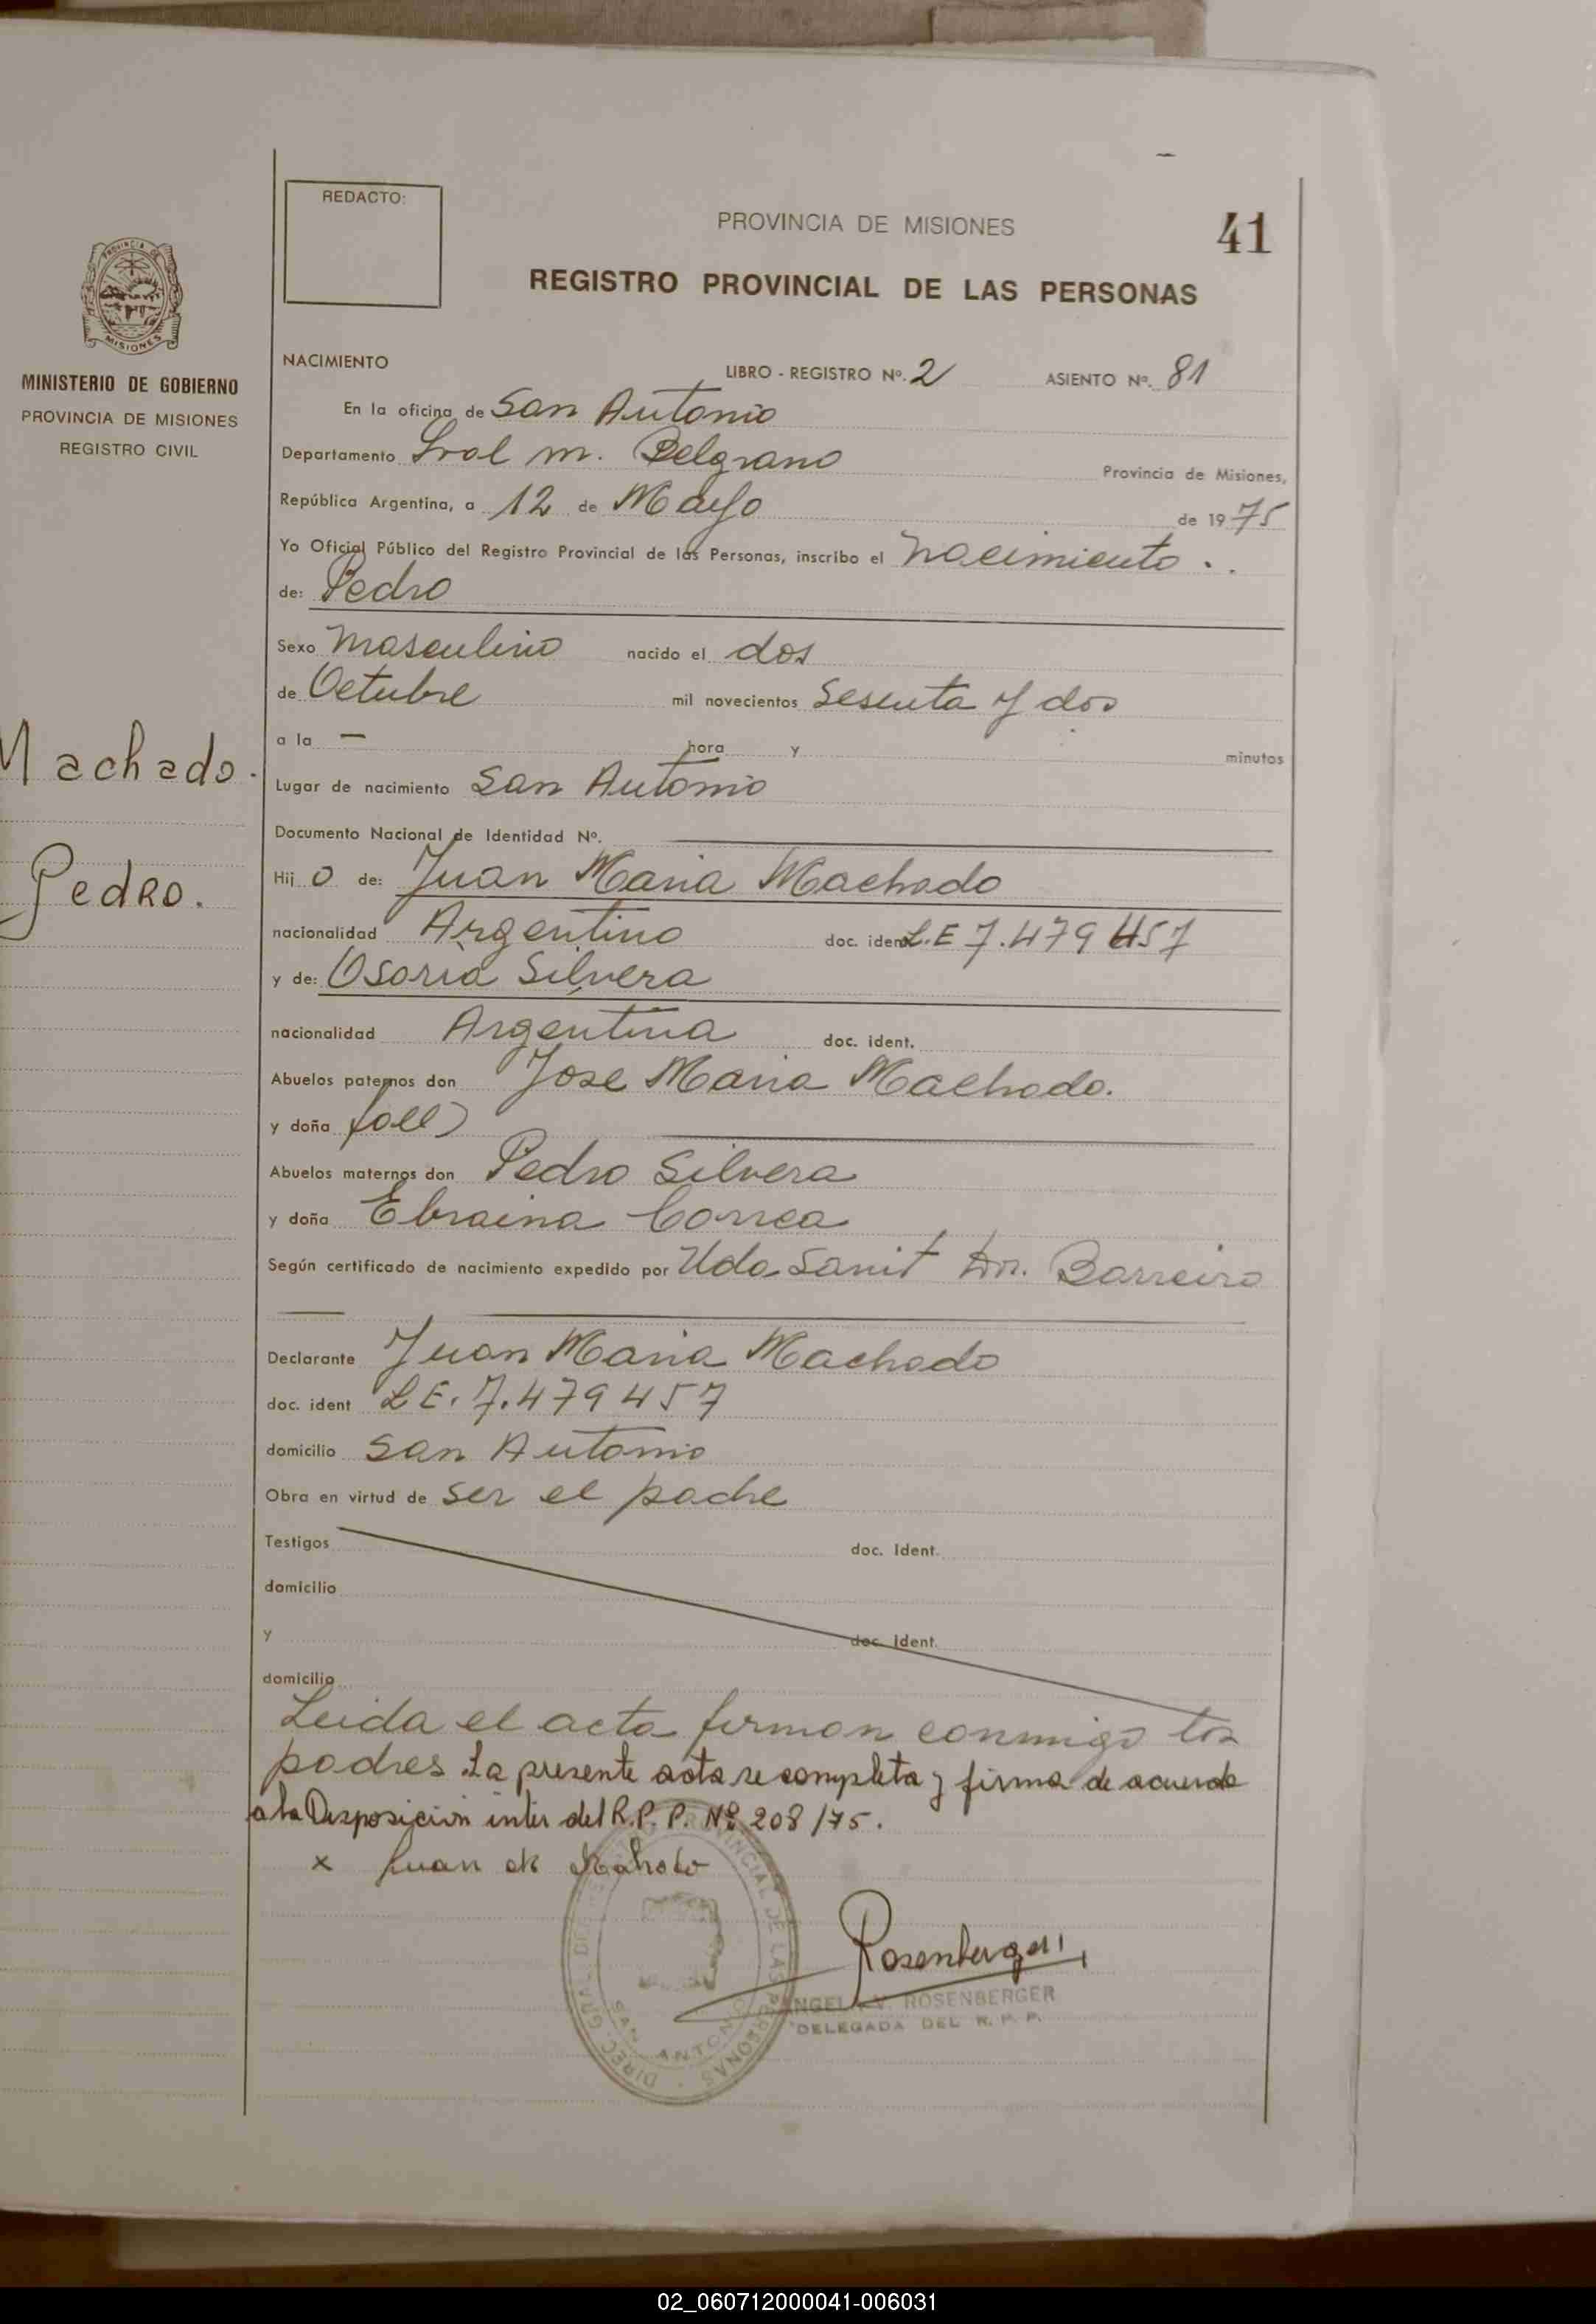 REDACTO:
PROVINCIA DE MISIONES
41
REGISTRO PROVINCIAL DE LAS PERSONAS
PROVINCIA DE
MISIONES
MINISTERIO DE GOBIERNO
PROVINCIA DE MISIONES
REGISTRO CIVIL
Machado.
Pedro.
NACIMIENTO LIBRO - REGISTRO Nº. 2 ASIENTO Nº. 81
En la oficina de San Antonio
Departamento Gral M. Belgrano Provincia de Misiones,
República Argentina, a 12 de Mayo de 1975
Yo Oficial Público del Registro Provincial de las Personas, inscribo el nacimiento ..
de: Pedro
Sexo Masculino nacido el dos
de Octubre mil novecientos Sesenta y dos
a la — hora y minutos
Lugar de nacimiento San Antonio
Documento Nacional de Identidad Nº.
Hij o de: Juan Maria Machado
nacionalidad Argentino doc. ident. L.E 7.479 457
y de: Osoria Silvera
nacionalidad Argentina doc. ident.
Abuelos paternos don Jose Maria Machado.
y doña
Abuelos maternos don Pedro Silvera
y doña Ebraina Correa
Según certificado de nacimiento expedido por Uda Sanit Dr. Barreiro
Declarante Juan Maria Machado
doc. ident L E. 7.479 457
domicilio San Antonio
Obra en virtud de ser el padre
Testigos doc. Ident.
domicilio
y doc. Ident.
domicilio
Leida el acta firman conmigo los
padres. La presente acta se completa y firma de acuerdo
a la Disposición inter del R.P.P. Nº 208/75.
x Juan
Rosenberger
ANGELA V. ROSENBERGER
DELEGADA DEL R. P. P.
DIREC. GRAL. DEL REGISTRO PROVINCIAL DE LAS PERSONAS
SAN ANTONIO
02_060712000041-006031